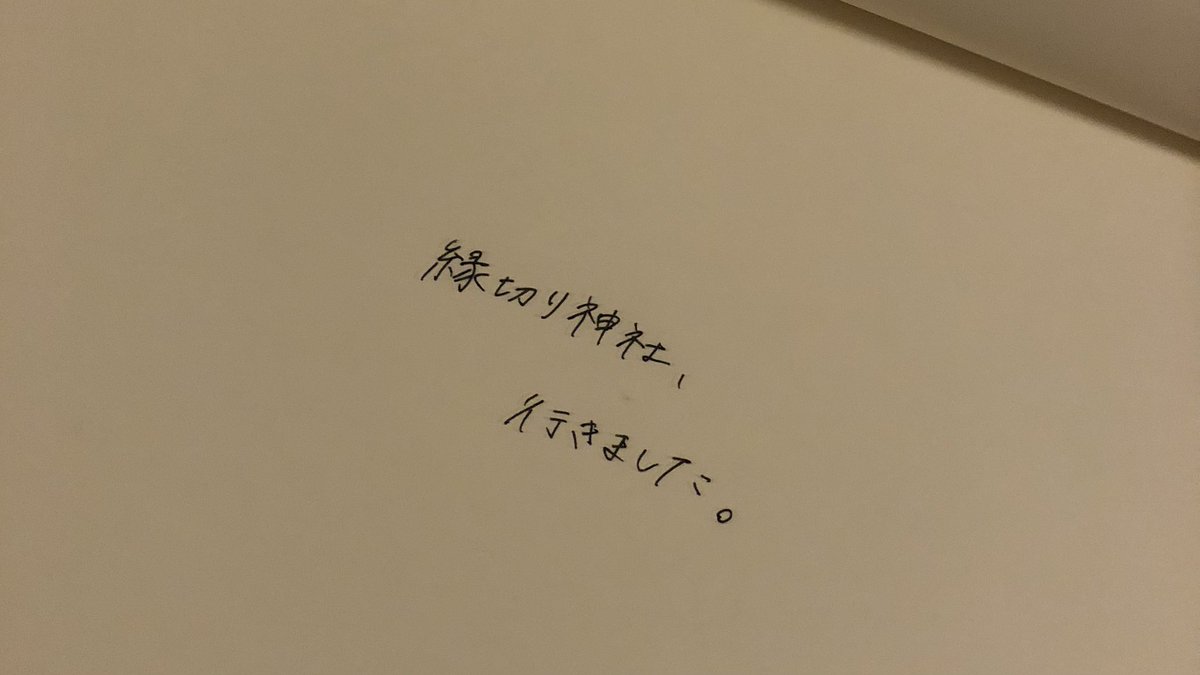 縁切り神社、
行きました。